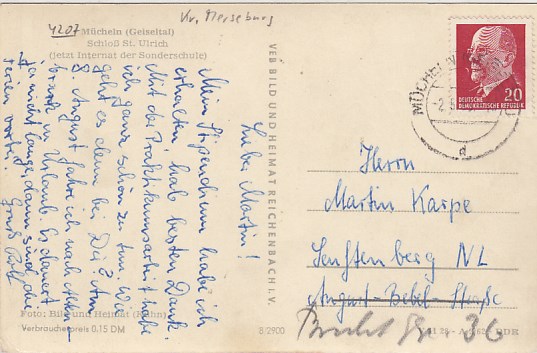 4207
Kr. Merseburg
Mücheln (Geiseltal)
Schloß St. Ulrich
(jetzt Internat der Sonderschule)
Lieber Martin!
Mein Stipendium habe ich
erhalten, hab besten Dank.
Mit der Praktikumsarbeit habe
ich ganz schön zu tun. Wie
geht es denn bei Dir? Am
8. August fahre ich nach
in Urlaub. Es dauert
ja nicht lange, dann sind die
Ferien vorbei!
Gruß
Foto: Bild und Heimat (Kühn)
Verbraucherpreis 0,15 DM
VEB BILD UND HEIMAT REICHENBACH I. V.
S 2900
DEUTSCHE
DEMOKRATISCHE REPUBLIK
20
MÜCHELN
Herrn
Martin Karpe
Senftenberg NL
August-Bebel-Straße
36
DDR